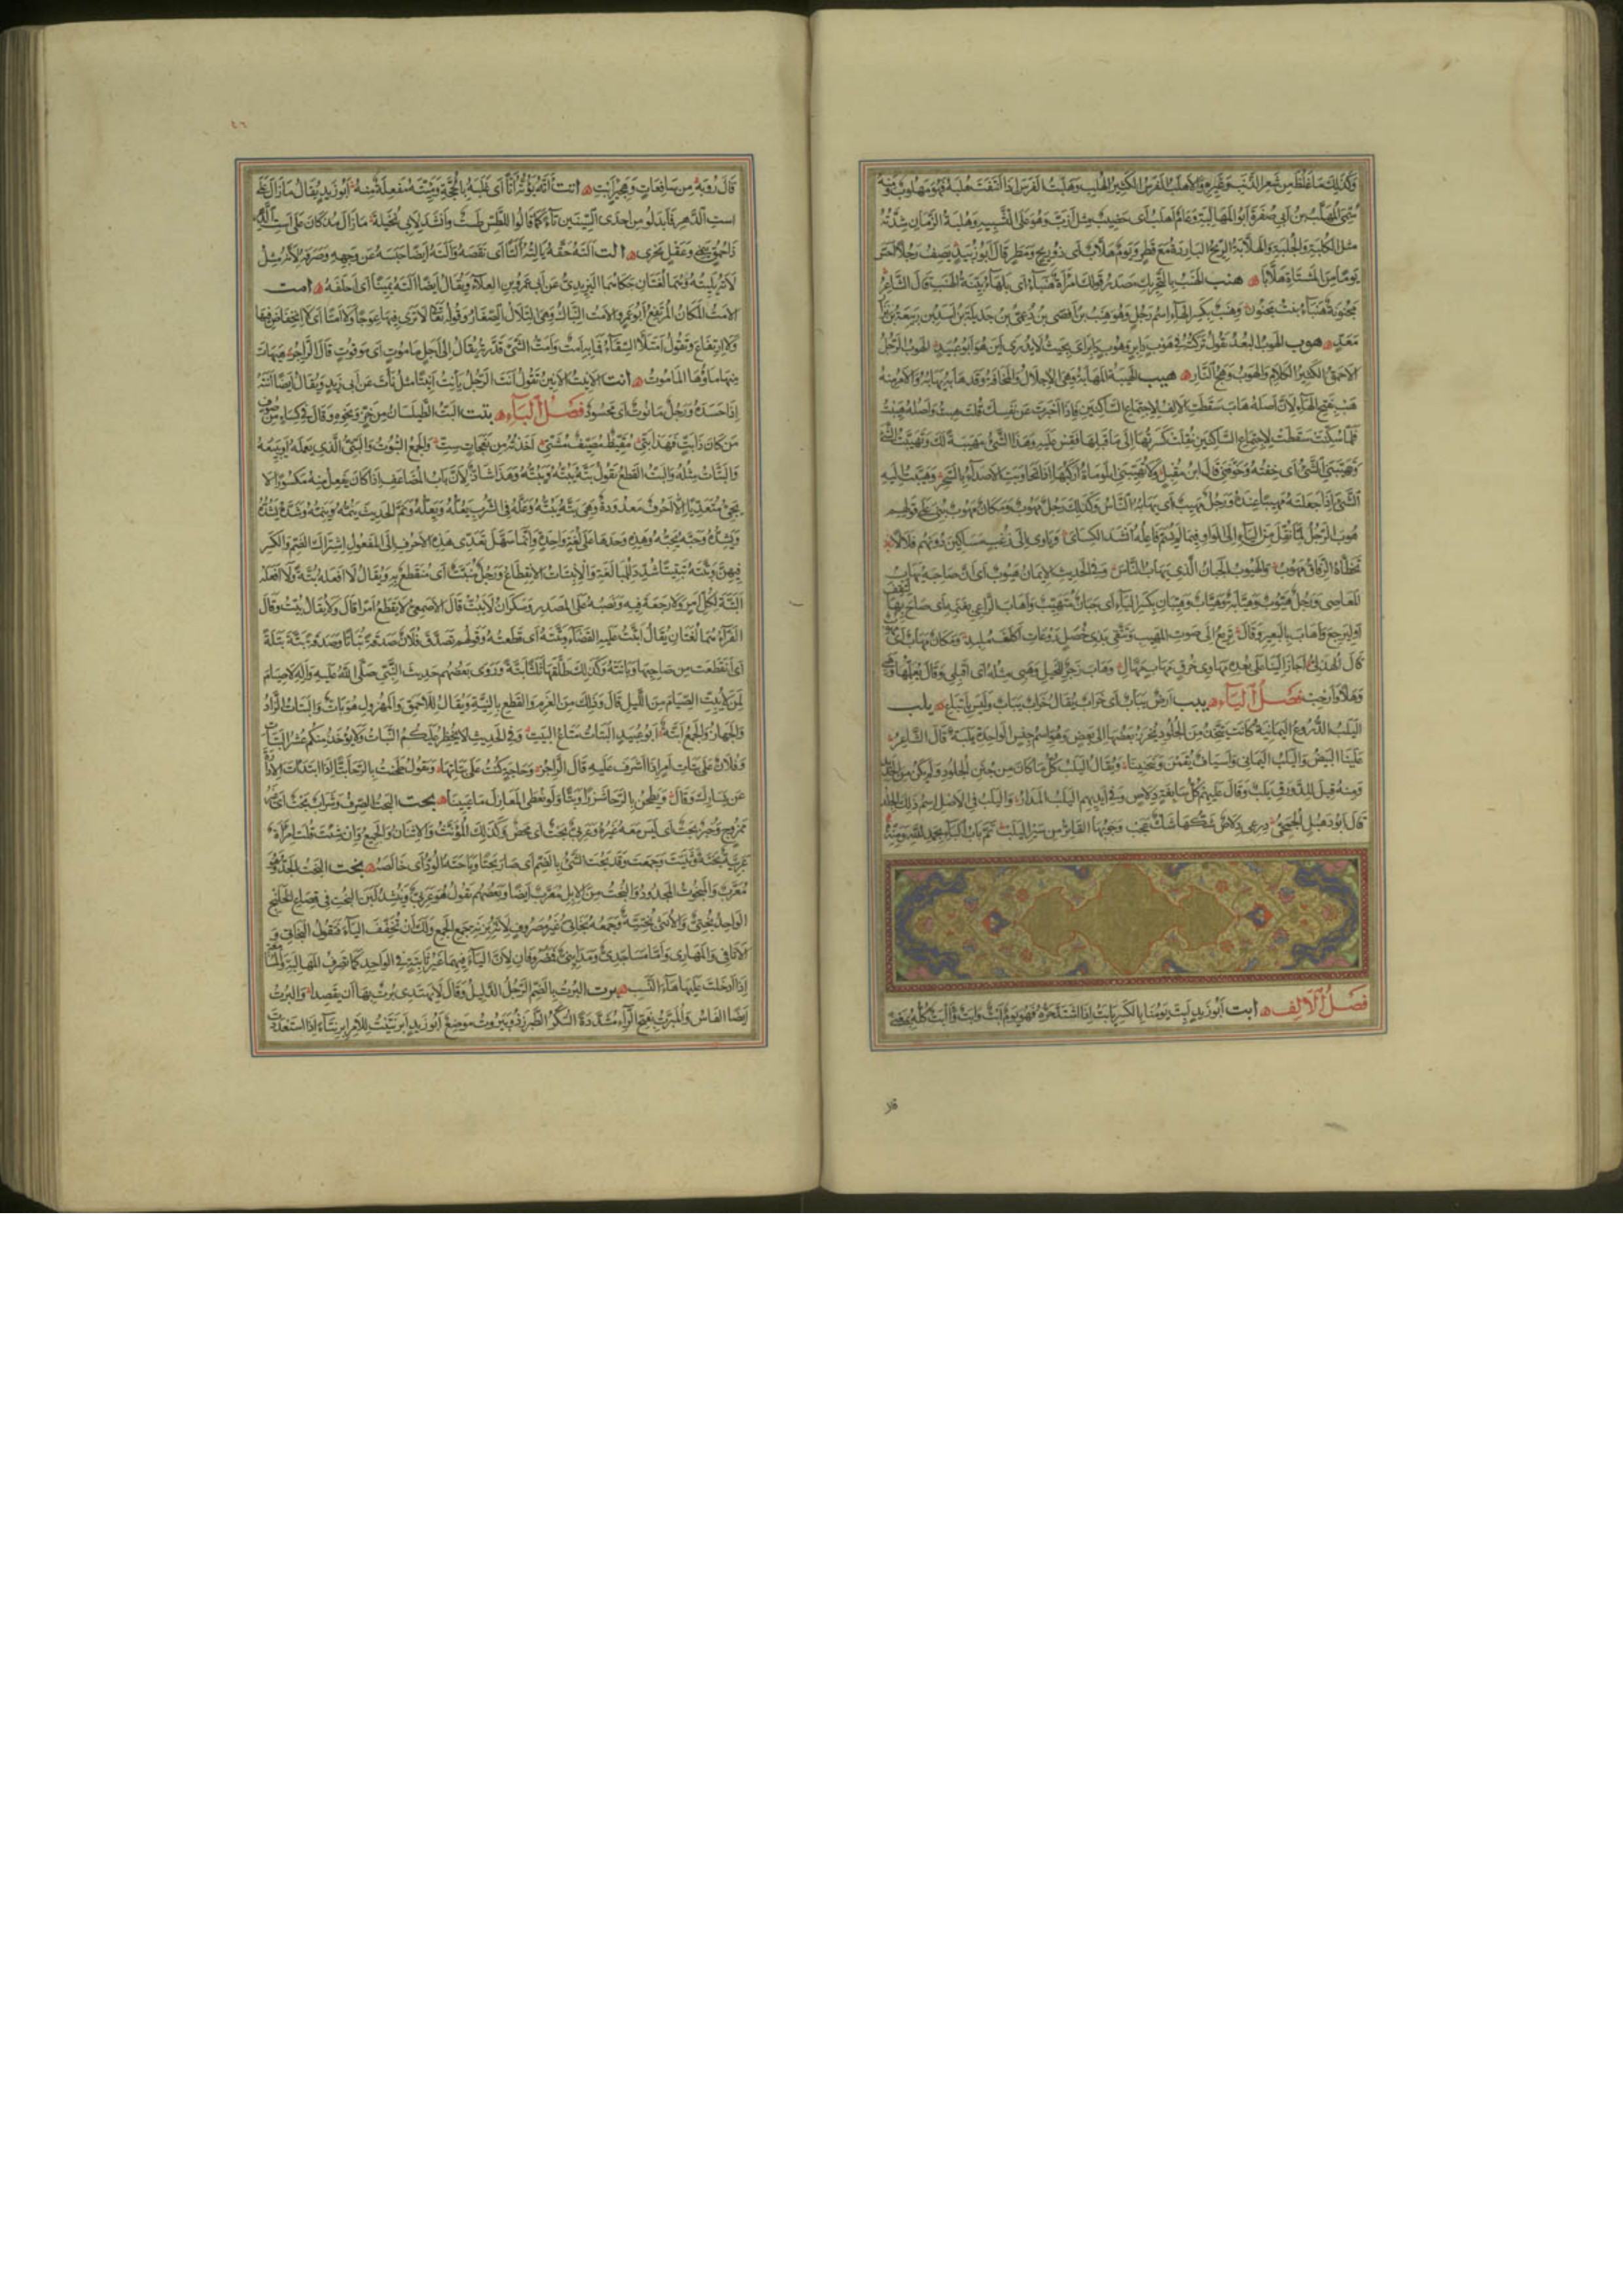 وكذلك ما غلظ من شعر الذنب وغيره والاهلب الفرس الكثير الهلب وهلبت الفرس اذا نتفت هلبه فهو مهلوب ومنه
سمى المهلب بن ابى صفرة ابو المهالبة وعام اهلب اى خصيب مثل ازب وهو على التشبيه وهلبة الزمان شدته
مثل الكلبة والجلبة والهلابة الريح الباردة مع قطر ويوم هلاب اى ذو ريح ومطر قال ابو زبيد يصف رجلا
يوما من المشتاة هلابا هنب الهنب بالتحريك مصدر قولك امراة هنباء اى بلهاء بينة الهنب قال الشاعر
مجنونة هنباء بنت مجنون وهنب بكسر الهاء اسم رجل وهو هنب بن افصى بن دعمى بن جديلة بن اسد بن ربيعة بن نزار
معد هوب الهوب البعد تقول تركته فى هوب دابر وهوب دابر اى بحيث لا يدرى اين هو ابو عبيد الهوب الرجل
الاحمق الكثير الكلام والهوب وهج النار هيب الهيبة المهابة وهى الاجلال والمخافة وقد هابه يهابه والامر منه
هب بفتح الهاء لان اصله هاب سقطت الالف لاجتماع الساكنين واذا اخبرت عن نفسك قلت هبت واصله هيبت
فلما سكنت سقطت لاجتماع الساكنين نقلت كسرتها الى ما قبلها فقس عليه وهذا الشئ مهيبة لك وتهيبت الشئ
وتهيبنى الشئ اى خفته وخوفنى قال ابن مقبل ولا تهيبنى الموماة اركبها اذا تجاوبت الاصداء بالسحر وهيبت اليه
الشئ اذا جعلته مهيبا عنده ورجل مهيب اى يهابه الناس وكذلك رجل مهوب ومكان مهوب بنى على قولهم
هوب الرجل لما نقل من الياء الى الواو فيما لم يسم فاعله انشد الكسائى وياوى الى زغب مساكين دونهم فلا لا
تخطاه الرفاق مهوب والهيوب الجبان الذى يهاب الناس وفى الحديث الايمان هيوب اى ان صاحبه يهاب
المعاصى ورجل هيوب وهيابة وهياب وهيبان بكسر الياء اى جبان متهيب واهاب الراعى بغنمه اى صاح بها لتقف
او لترجع واهاب بالبعير وقال تريع الى صوت المهيب وتتقى بذى خصل روعات اكلف ملبد ومكان مهاب اى
قال الهذلى اجاز الينا على بعده مهاوى خرق مهاب مهال وهاب زجر للخيل وهبى مثله اى اقبلى وقال يعلمها هبى
وهلا وارحب فصل الياء يبب ارض يباب اى خراب يقال خراب يباب وليس باتباع يلب
اليلب الدروع اليمانية كانت تتخذ من الجلود يخرز بعضها الى بعض وهو اسم جنس الواحدة يلبة قال الشاعر
علينا البيض واليلب اليمانى واسياف يقمن وينحنينا ويقال اليلب كل ما كان من جنن الجلود ولم يكن من الحديد
ومنه قيل للدرق يلب وقال عليهم كل سابغة دلاص وفى ايديهم اليلب المدار واليلب فى الاصل اسم ذلك الجلد
قال ابو دهبل الجمحى درعى دلاص شكها شك عجب وجوبها القاتر من سير اليلب تم باب الباء بحمد الله ومنه
فصل الالف ابت ابو زيد ابت يومنا بالكسر يابت اذا اشتد حره فهو يوم ابت وابت وابت كله بمعنى
قلا
٤٦
قال رؤبة من سافعات وهجير ابت اتت اته يؤته اتا اى غلبه بالحجة ومئتة مفعلة منه ابو زيد يقال ما زال على
است الدهر فابدلوا من احدى السينين تاء كما قالوا للطس طست وانشد لابى نخيلة ما زال مذ كان على است الدهر
ذا حمق ينمى وعقل يحرى الت الته حقه يالته التا اى نقصه والته ايضا حبسه عن وجهه وصرفه لاته مثل
لاته يليته وهما لغتان حكاهما اليزيدى عن ابى عمرو بن العلاء ويقال ايضا الته يمينا اى احلفه امت
الامت المكان المرتفع ابو عمرو الامت النباك وهى التلال الصغار وقوله تعالى لا ترى فيها عوجا ولا امتا اى لا انخفاض فيها
ولا ارتفاع وتقول امتلأ السقاء فما به امت وامت الشئ قدرته يقال الى اجل ماموت اى موقوت قال الراجز هيهات
منها ماؤها الماموت انت الانيت الانين تقول انت الرجل يانت انيتا مثل نات عن ابى زيد ويقال ايضا انته
اذا حسده ورجل مانوت اى محسود فصل الباء بتت البت الطيلسان من خز ونحوه وقال فى كساء من صوف
من كان ذا بت فهذا بتى مقيظ مصيف مشتى اخذته من نعجات ست والجمع البتوت والبتى الذى يعمله او يبيعه
والبتات مثله والبت القطع تقول بته يبته ويبته وهذا شاذ لان باب المضاعف اذا كان يفعل منه مكسورا لا
يجئ متعديا الا احرف معدودة وهى بته يبته ويبته وعله فى الشرب يعله ويعله ونم الحديث ينمه وينمه وشده يشده
ويشده وحبه يحبه وهذه وحدها على لغة واحدة وانما سهل تعدى هذه الاحرف الى المفعول اشتراك الضم والكسر
فيهن وبتته تبتيتا شدد للمبالغة والانبتات الانقطاع ورجل منبت اى منقطع به ويقال لا افعله بتة ولا افعله
البتة لكل امر لا رجعة فيه ونصبه على المصدر وسكران لا يبت قال الاصمعى لا يقطع امرا قال ولا يقال يبت وقال
الفراء هما لغتان يقال ابتت عليه القضاء وبتته اى قطعته وقولهم تصدق فلان صدقة بتاتا وصدقة بتة بتلة
اى انقطعت من صاحبها وبانته وكذلك طلقها ثلاثا بتة وروى بعضهم حديث النبى صلى الله عليه واله لا صيام
لمن لا يبت الصيام من الليل قال وذلك من العزم والقطع بالنية ويقال للاحمق والمهزول هو بات والبتات الزاد
والجهاز والجمع ابتة ابو عبيد البتات متاع البيت وفى الحديث لا يحظر عليكم النبات ولا يؤخذ منكم عشر البتات
وفلان على بتات امر اذا اشرف عليه قال الراجز وحاجة كنت على بتاتها وتقول طحنت بالرحا بتا اذا ابتدات الادارة
عن يسارك وقال ونطحن بالرحا شزرا وبتا ولو نعطى المغازل ما عيينا بحت البحت الصرف وشراب بحت اى غير
ممزوج وخبز بحت اى ليس معه غيره وعربى بحت اى محض وكذلك المؤنث والاثنان والجميع وان شئت قلت امراة
عربية بحتة وثنيت وجمعت وقد بحت الشئ بالضم اى صار بحتا وباحته الود اى خالصه بخت البخت الجد وهو
معرب والمبخوت المجدود والبخت من الابل معرب ايضا وبعضهم يقول هو عربى وينشد لبن البخت فى قصاع الخلنج
الواحد بختى والانثى بختية وجمعه بخاتى غير مصروف لانه بزنة جمع الجمع ولك ان تخفف الياء فتقول البخاتى و
الاثافى والمهارى واما مساجدى ومدائنى فمصروفان لان الياء فيهما غير ثابتة فى الواحد كما تصرف المهالبة والمسامعة
اذا ادخلت عليها هاء النسب برت البرت بالضم الرجل الدليل وقال لا يهتدى برت بها ان يقصدا والبرت
ايضا الفاس والمبرت بفتح الراء مشددة السكر الطبرزذ وبيروت موضع ابو زيد ابرنتيت للامر ابرنتاء اذا استعددت